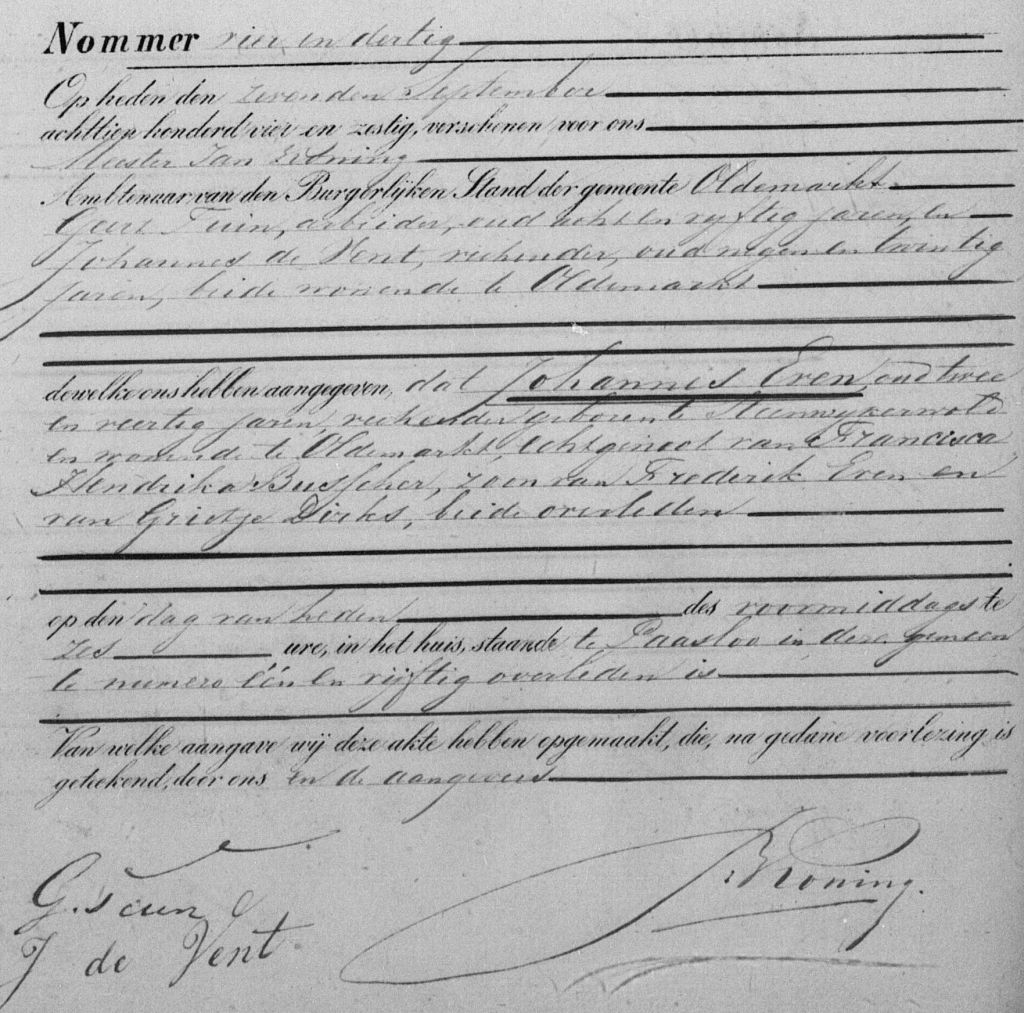 Nommer vier en dertig
Op heden den zevenden September
achttien honderd vier en zestig, verschenen voor ons
Meester Jan Kroning
Ambtenaar van den Burgerlijken Stand der gemeente Oldemarkt
Geert Tuin, arbeider, oud acht en vijftig jaren, en
Johannes de Vent, veehouder, oud negen en twintig
jaren, beide wonende te Oldemarkt
dewelke ons hebben aangegeven, dat Johannes Even, oud twee
en veertig jaren, veehouder geboren te Steenwijkerwold
en wonende te Oldemarkt, echtgenoot van Francisca
Hendrika Busscher, zoon van Frederik Even en
van Grietje Dirks, beide overleden
op den dag van heden des voormiddags te
zes ure, in het huis, staande te Paasloo in deze gemeen
te numero één en vijftig overleden is
Van welke aangave wij deze akte hebben opgemaakt, die, na gedane voorlezing is
getekend, door ons en de aangevers
G. Tuin
J de Vent